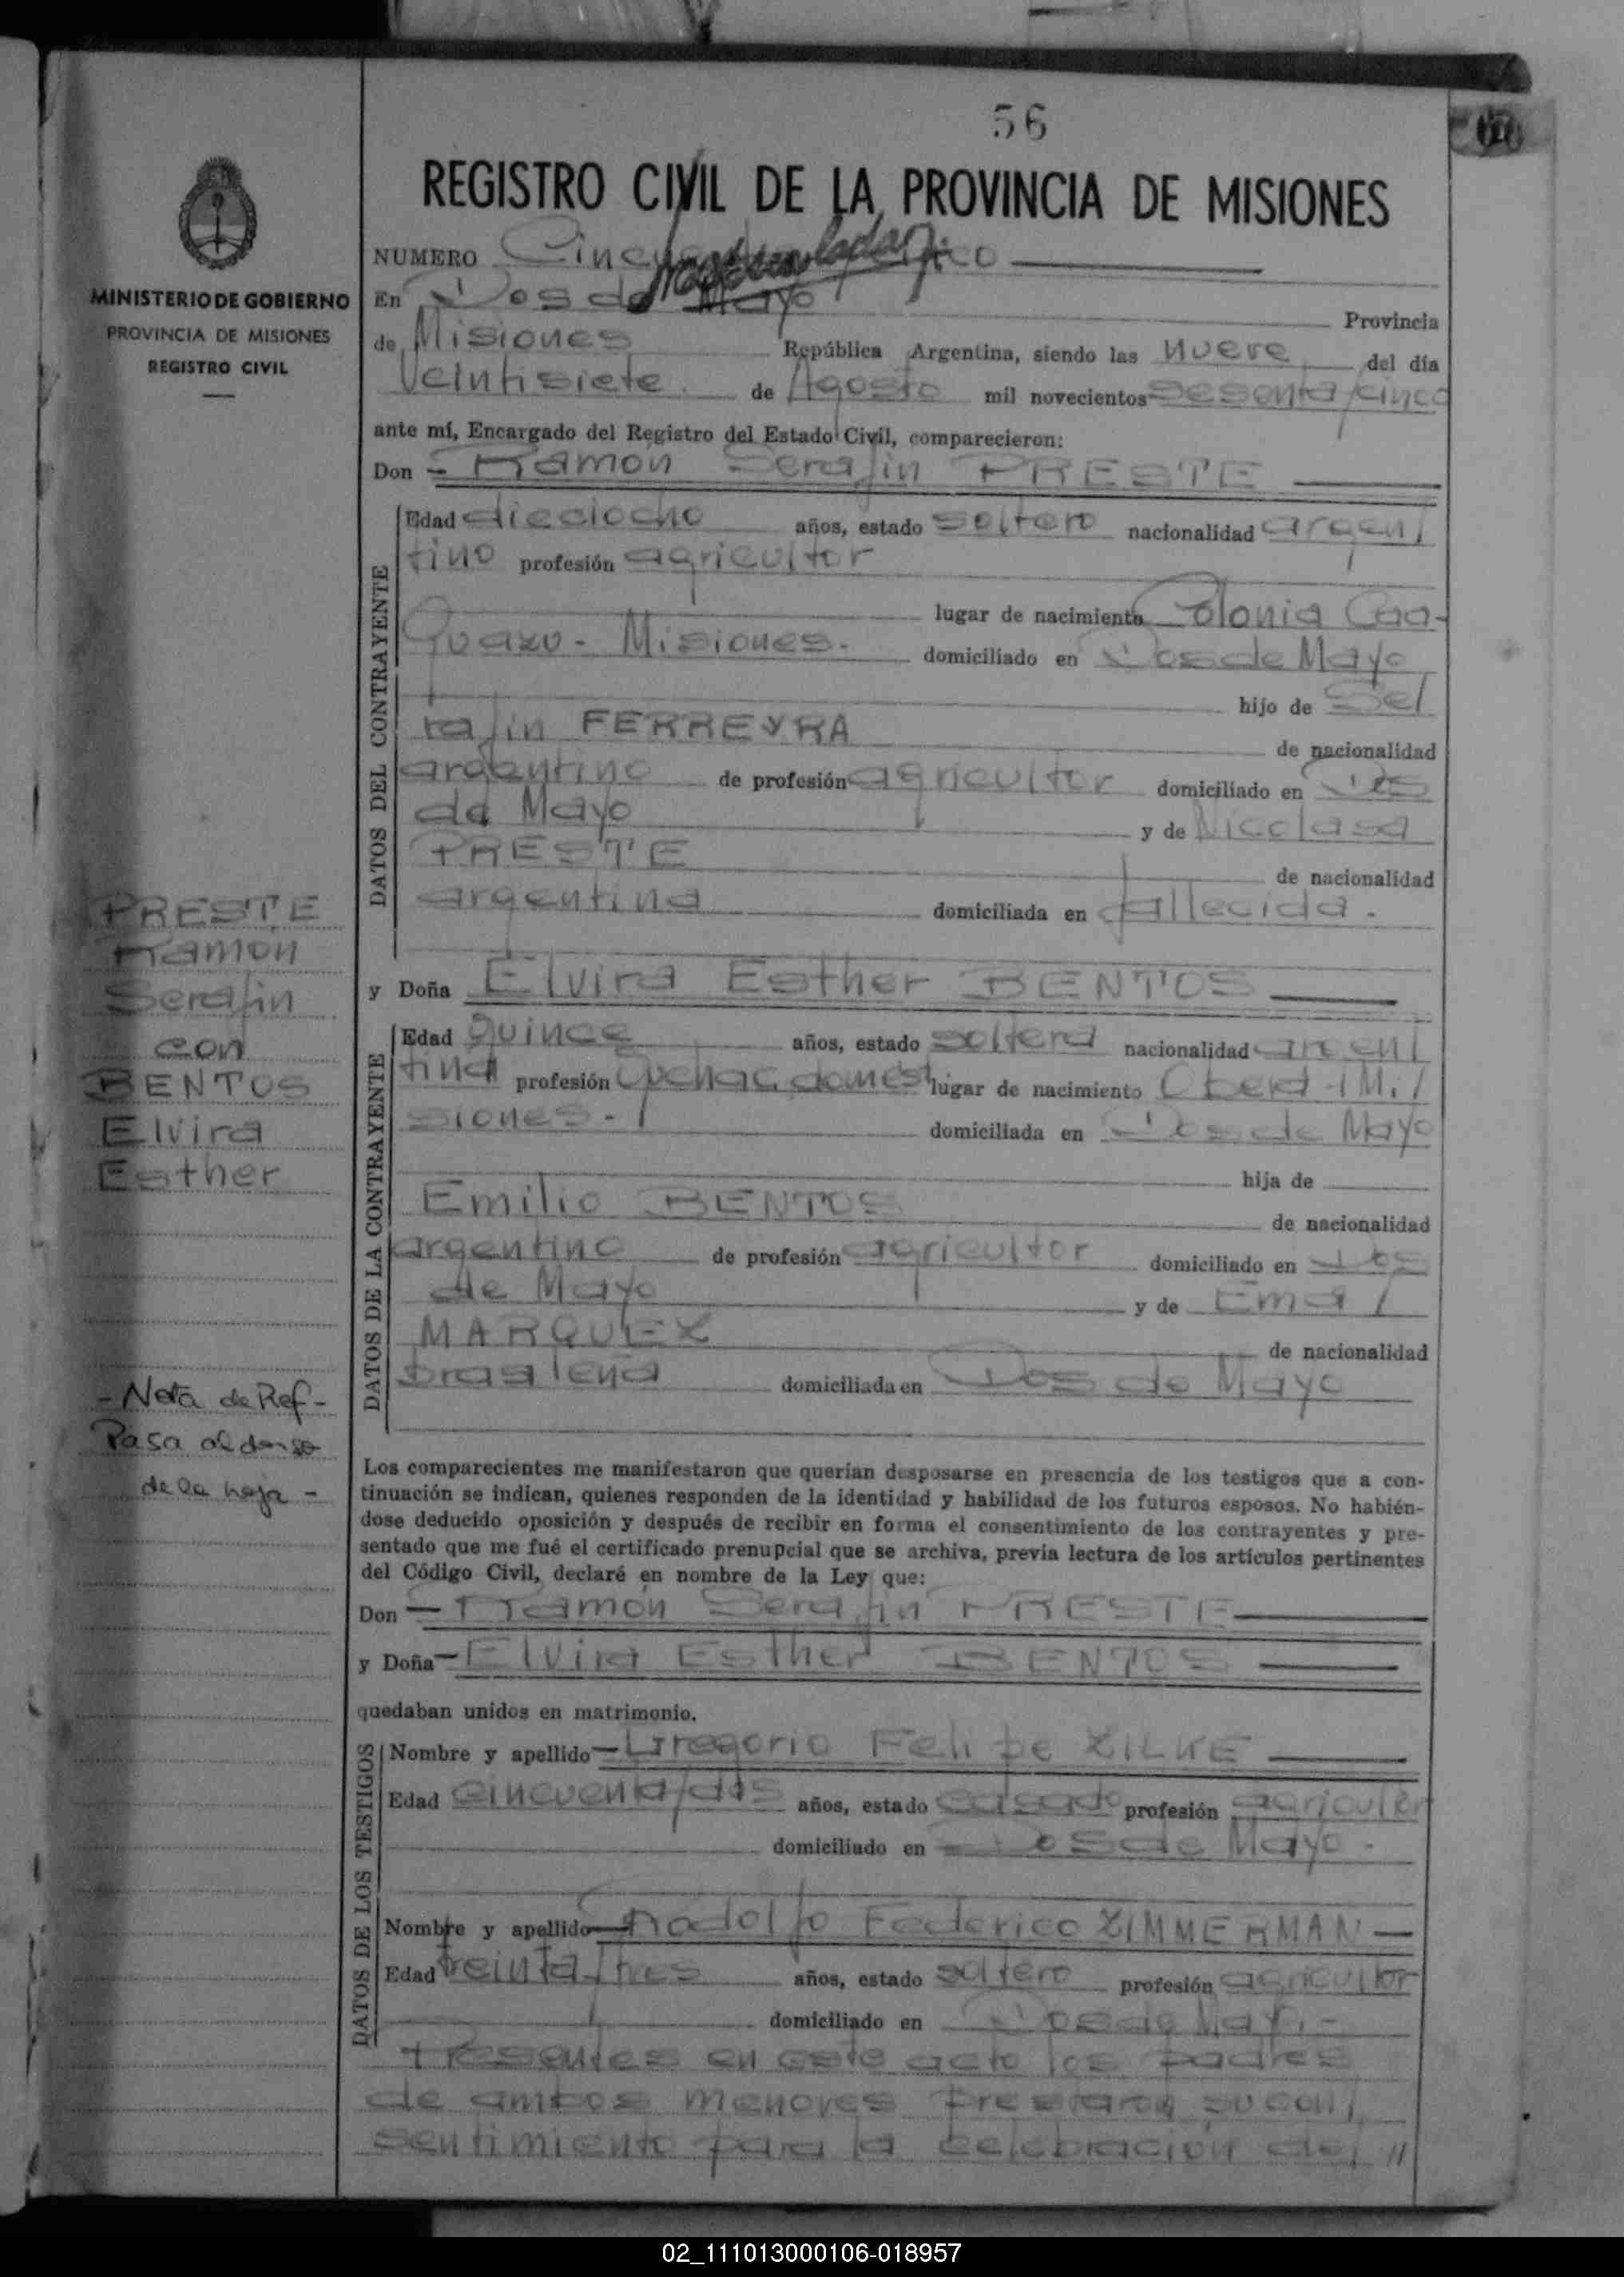 56
REGISTRO CIVIL DE LA PROVINCIA DE MISIONES
MINISTERIO DE GOBIERNO
PROVINCIA DE MISIONES
REGISTRO CIVIL
NUMERO
En Dos de Mayo
Provincia
de Misiones República Argentina, siendo las nueve del día
Veintisiete de Agosto mil novecientos sesenta/cinco
ante mí, Encargado del Registro del Estado Civil, comparecieron:
Don - Ramón Serafin PRESTE
DATOS DEL CONTRAYENTE
Edad dieciocho años, estado soltero nacionalidad argen/
tino profesión agricultor
lugar de nacimiento Colonia Caa-
Guazu - Misiones.- domiciliado en Dos de Mayo
hijo de Se/
rafin FERREYRA
de nacionalidad
argentino de profesión agricultor domiciliado en Dos
de Mayo y de Nicolasa
PRESTE
de nacionalidad
argentina domiciliada en fallecida.-
PRESTE
Ramón
Serafin
con
BENTOS
Elvira
Esther
y Doña Elvira Esther BENTOS
DATOS DE LA CONTRAYENTE
Edad quince años, estado soltera nacionalidad argen/
tina profesión Quehac. domést lugar de nacimiento Oberá - (Mi/
siones.- domiciliada en Dos de Mayo
hija de
Emilio BENTOS
de nacionalidad
argentino de profesión agricultor domiciliado en Dos
de Mayo y de Ema /
MARQUEZ
de nacionalidad
brasileña domiciliada en Dos de Mayo
- Nota de Ref -
Pasa al dorso
de la hoja -
Los comparecientes me manifestaron que querían desposarse en presencia de los testigos que a con-
tinuación se indican, quienes responden de la identidad y habilidad de los futuros esposos. No habién-
dose deducido oposición y después de recibir en forma el consentimiento de los contrayentes y pre-
sentado que me fué el certificado prenupcial que se archiva, previa lectura de los artículos pertinentes
del Código Civil, declaré en nombre de la Ley que:
Don - Ramón Serafin PRESTE
y Doña - Elvira Esther BENTOS
quedaban unidos en matrimonio.
DATOS DE LOS TESTIGOS
Nombre y apellido - Gregorio Felipe ZILKE
Edad cincuenta/dos años, estado casado profesión agricultor
domiciliado en Dos de Mayo.-
Nombre y apellido Rodolfo Federico ZIMMERMAN
Edad treinta/tres años, estado soltero profesión agricultor
domiciliado en Dos de Mayo.-
Presentes en este acto los padres
de ambos menores prestaron su con/
sentimiento para la celebración del //
02_111013000106-018957